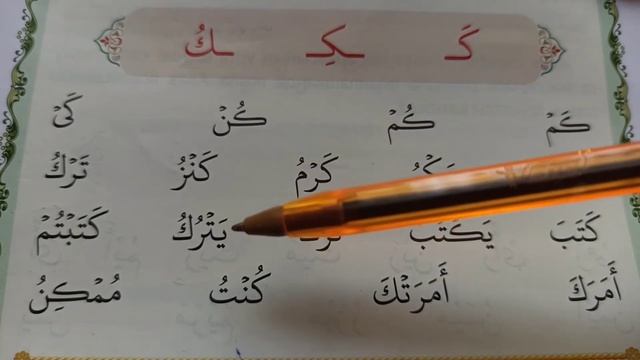 كَـ ـكِـ ـكُ
كَمْ كُمْ كُنْ كَىْ
كَرْمُ كَنْزُ تَرْكُ
كَتَبَ يَكْتُبُ يَتْرُكُ كَتَبْتُمْ
أَمَرَكَ أَمَرَتْكَ كُنْتُ مُمْكِنُ